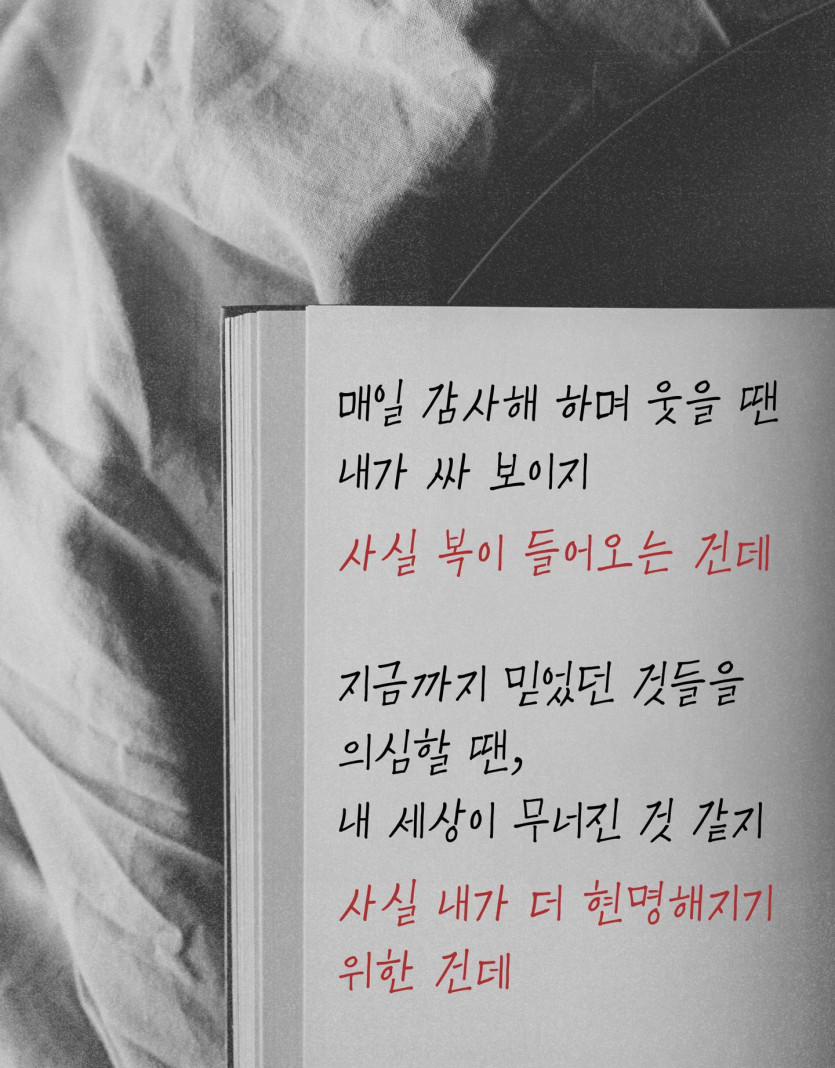 매일 감사해 하며 웃을 땐
내가 싸 보이지
사실 복이 들어오는 건데
지금까지 믿었던 것들을
의심할 땐,
내 세상이 무너진 것 같지
사실 내가 더 현명해지기
위한 건데